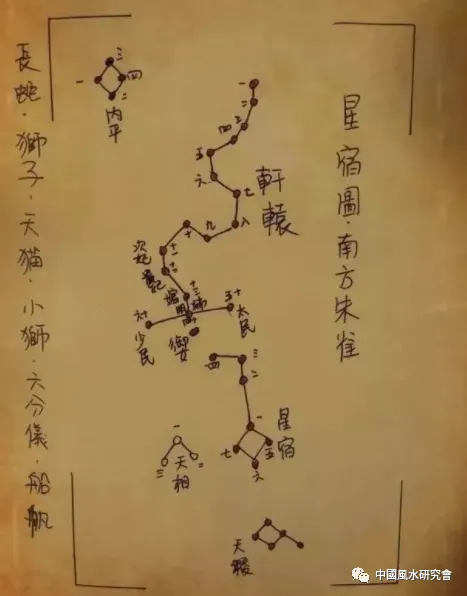 星宿圖·南方朱雀
三
一
四
二
内平
一
二
三
四
五
六
七
八
九
十
十一
十二
軒轅
次妃
十五
太民
十六
少民
御
四
三
二
一
七
五
六
星宿
一
二
三
天相
天稷
長蛇·獅子·天猫·小獅·六分儀·船帆
中國風水研究會